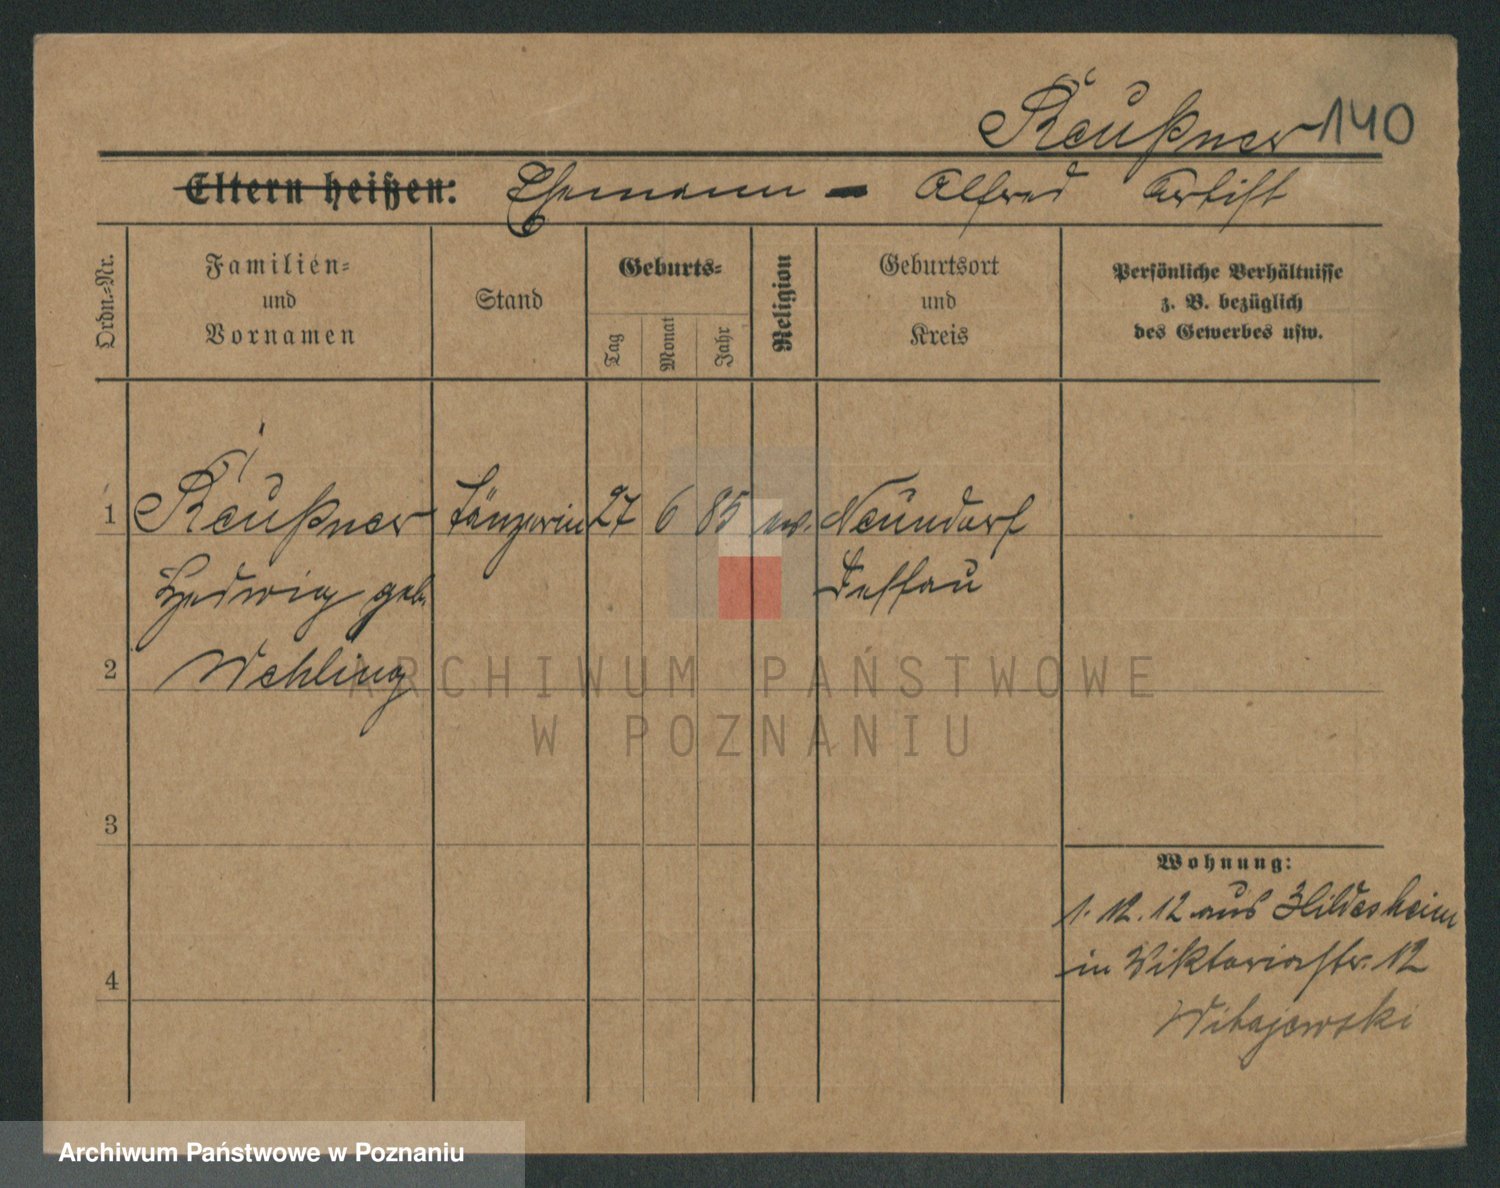 Reußner 140
Eltern heißen: Ehemann – Alfred Artist
Ordn.-Nr.
Familien-
und
Vornamen
Stand
Geburts-
Tag
Monat
Jahr
Religion
Geburtsort
und
Kreis
Persönliche Verhältnisse
z. B. bezüglich
des Gewerbes usw.
1 Reußner Tänzerin 27 6 85 ev. Neundorf
Hedwig geb. Dessau
2 Wehling
ARCHIWUM PAŃSTWOWE
W POZNANIU
3
Wohnung:
1. 12. 12 aus Hildesheim
in Viktoriastr. 12
4
Witajewski
Archiwum Państwowe w Poznaniu